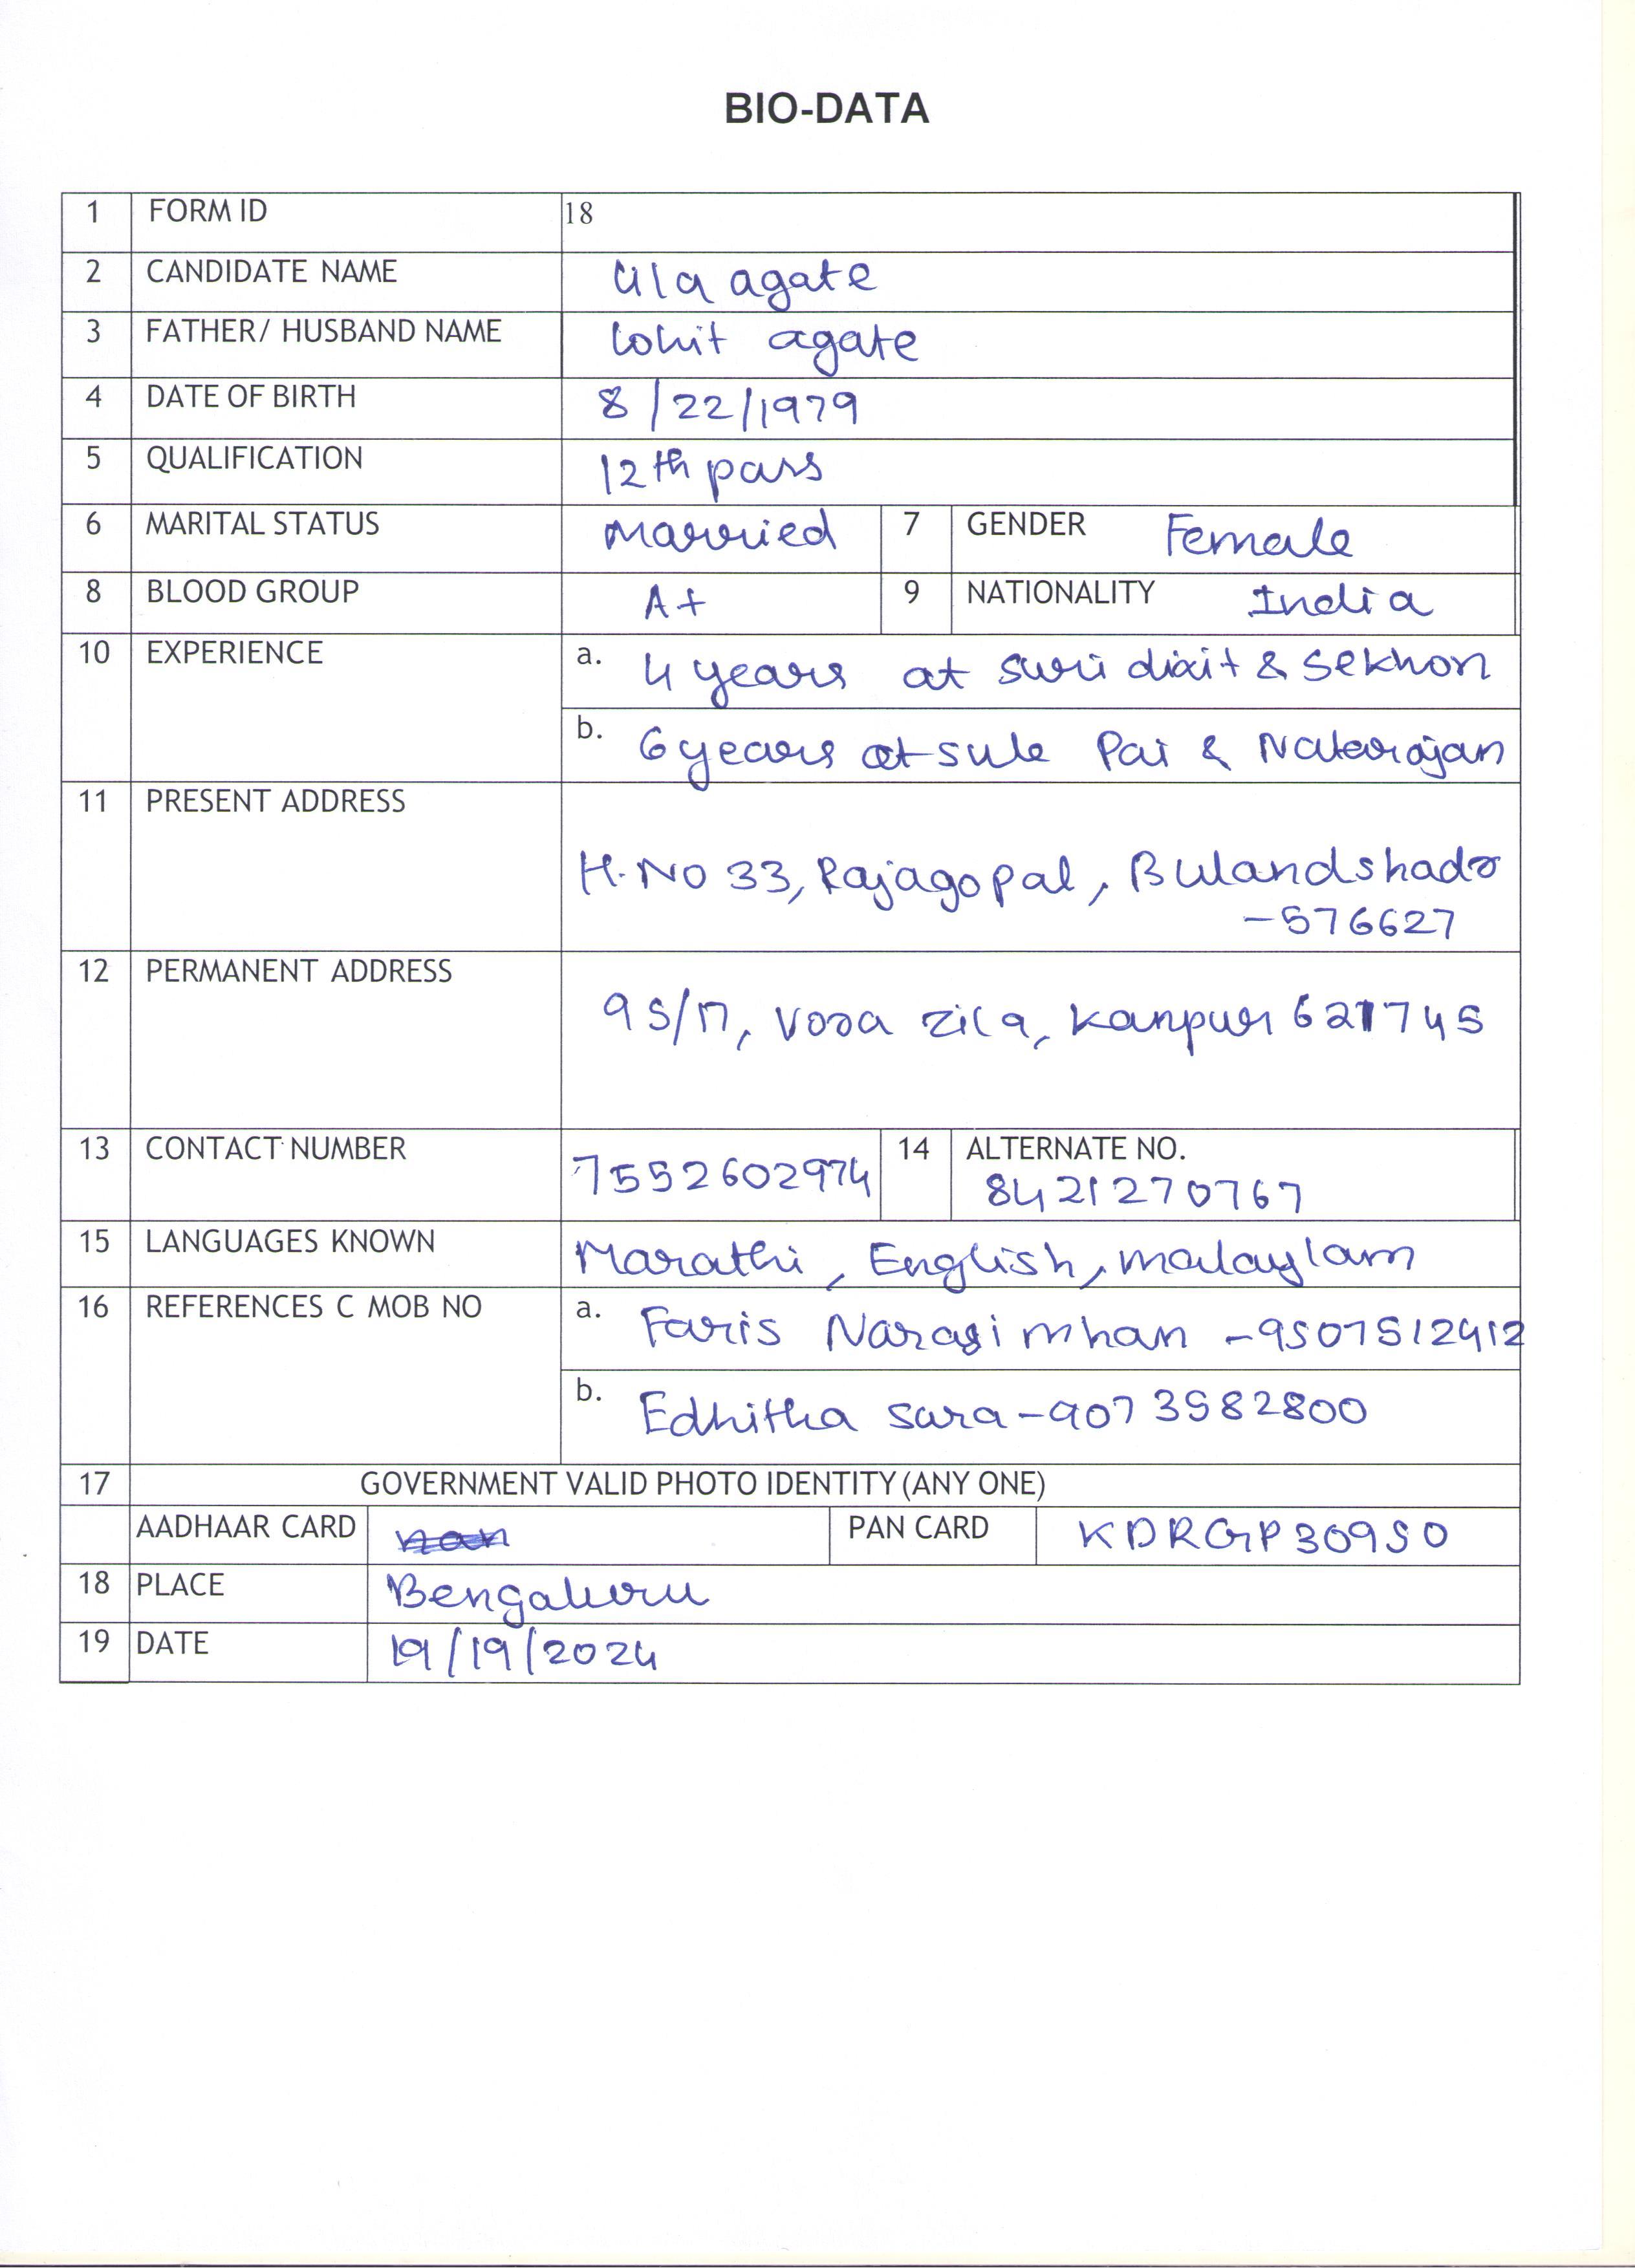 BIO-DATA
1 FORM ID 18
2 CANDIDATE NAME Lila agate
3 FATHER/ HUSBAND NAME lohit agate
4 DATE OF BIRTH 8/22/1979
5 QUALIFICATION 12th pass
6 MARITAL STATUS Married 7 GENDER Female
8 BLOOD GROUP A+ 9 NATIONALITY India
10 EXPERIENCE a. 4 years at suri dixit & Sekhon
b. 6 years at sule Pai & Natarajan
11 PRESENT ADDRESS
H.NO 33, Rajagopal, Bulandshadr
-576627
12 PERMANENT ADDRESS
95/17, Vora zila, Kanpur 621745
13 CONTACT NUMBER 7552602974 14 ALTERNATE NO.
8421270767
15 LANGUAGES KNOWN Marathi, English, malaylam
16 REFERENCES C MOB NO a. Faris Narasimhan -9507512412
b. Edhitha sara-9073582800
17 GOVERNMENT VALID PHOTO IDENTITY (ANY ONE)
AADHAAR CARD PAN CARD KDRGP3095O
18 PLACE Bengaluru
19 DATE 19/19/2024